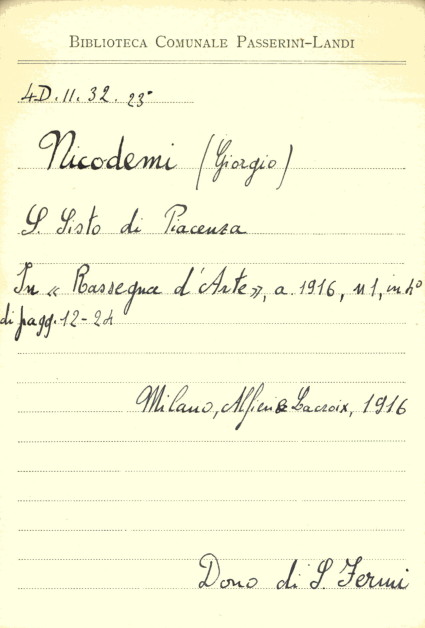 BIBLIOTECA COMUNALE PASSERINI-LANDI
4D.11.32.23°
Nicodemi (Giorgio)
S. Sisto di Piacenza
In « Rassegna d'Arte», a. 1916, n 1, in 4°
di pagg. 12-24
Milano, Alfieri & Lacroix, 1916
Dono di S. Fermi